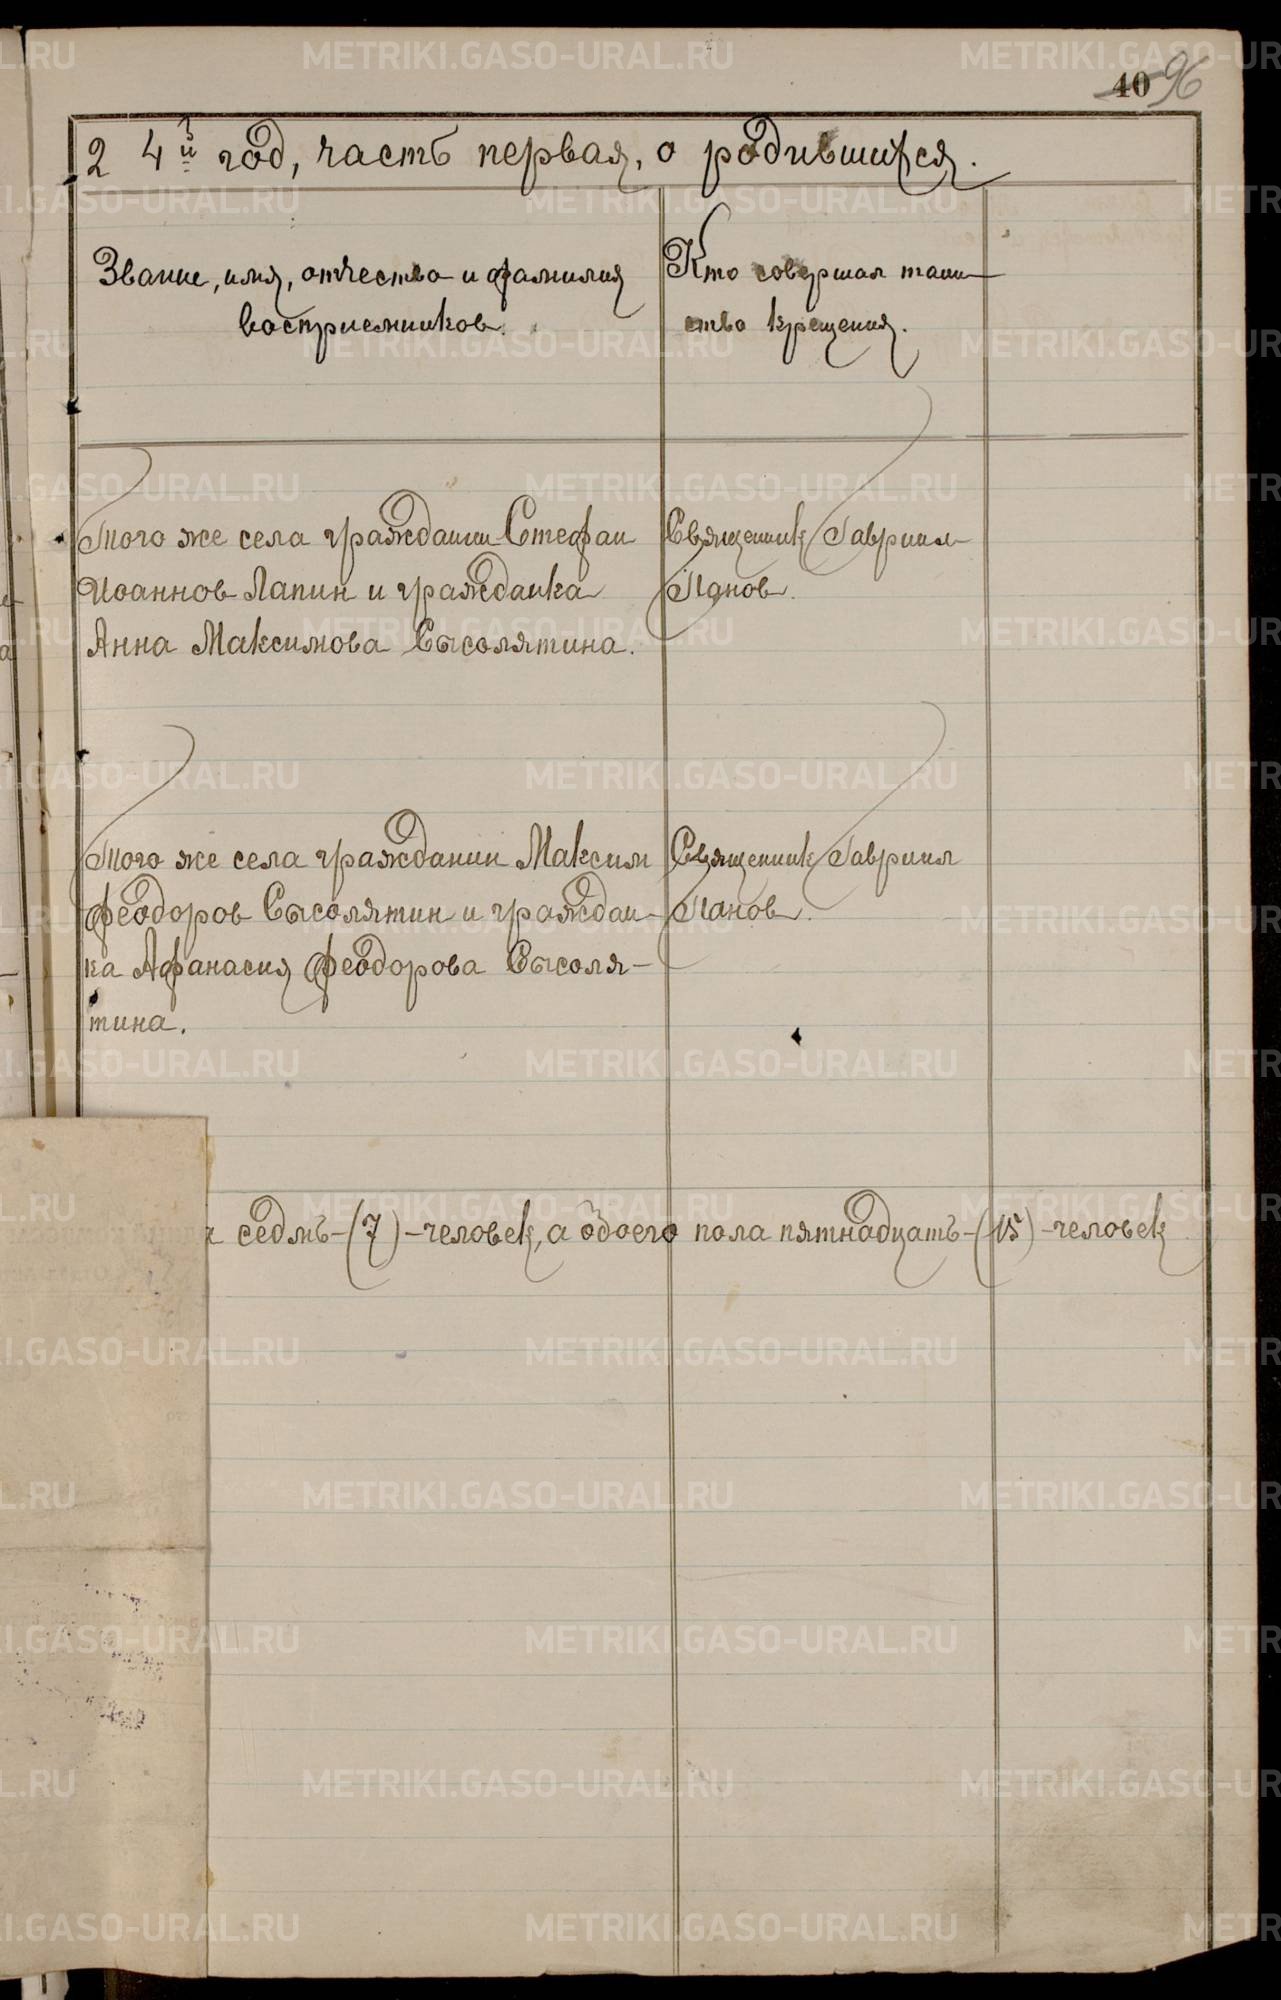 40 96
2 4й год, часть первая, о родившихся.
Звание, имя, отчество и фамилия
восприемников.
Кто совершал таин-
ство крещения.
Того же села гражданин Стефан
Иоаннов Лапин и гражданка
Анна Максимова Сысолятина.
Священник Гавриил
Панов.
Того же села гражданин Максим
Феодоров Сысолятин и граждан-
ка Афанасия Феодорова Сысоля-
тина.
Священник Гавриил
Панов.
седмь-(7)-человек, а обоего пола пятнадцать-(15)-человек
METRIKI.GASO-URAL.RU